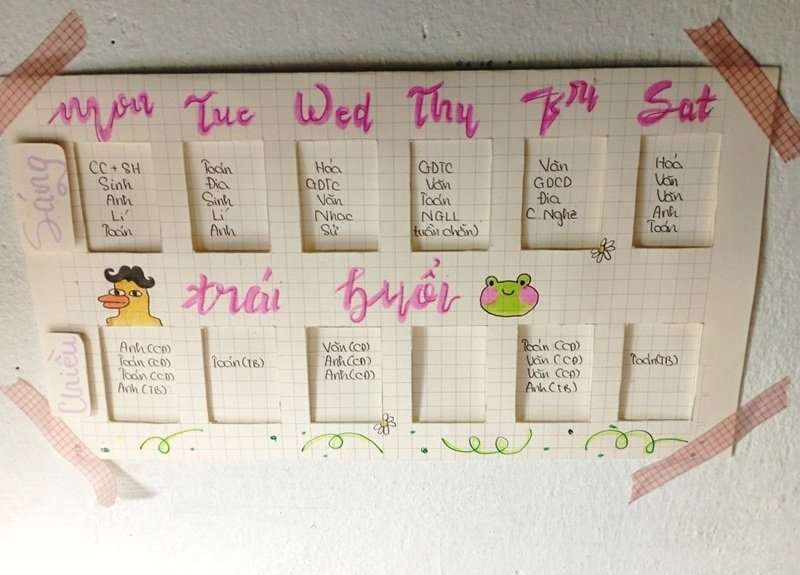 Mon Tue Wed Thu Fri Sat
Sáng
CC + SH
Sinh
Anh
Lí
Toán
Toán
Địa
Sinh
Lí
Anh
Hoá
GDTC
Văn
Nhạc
Sử
GDTC
Văn
Toán
NGLL
tuần chẵn)
Văn
GDCD
Địa
C. Nghệ
Hoá
Văn
Văn
Anh
Toán
trái buổi
Chiều
Anh (CĐ)
Toán (CĐ)
Toán (CĐ)
Anh (TB)
Toán (TB)
Văn (CĐ)
Anh (CĐ)
Anh (CĐ)
Toán (CĐ)
Văn (CĐ)
Văn (CĐ)
Anh (TB)
Toán (TB)